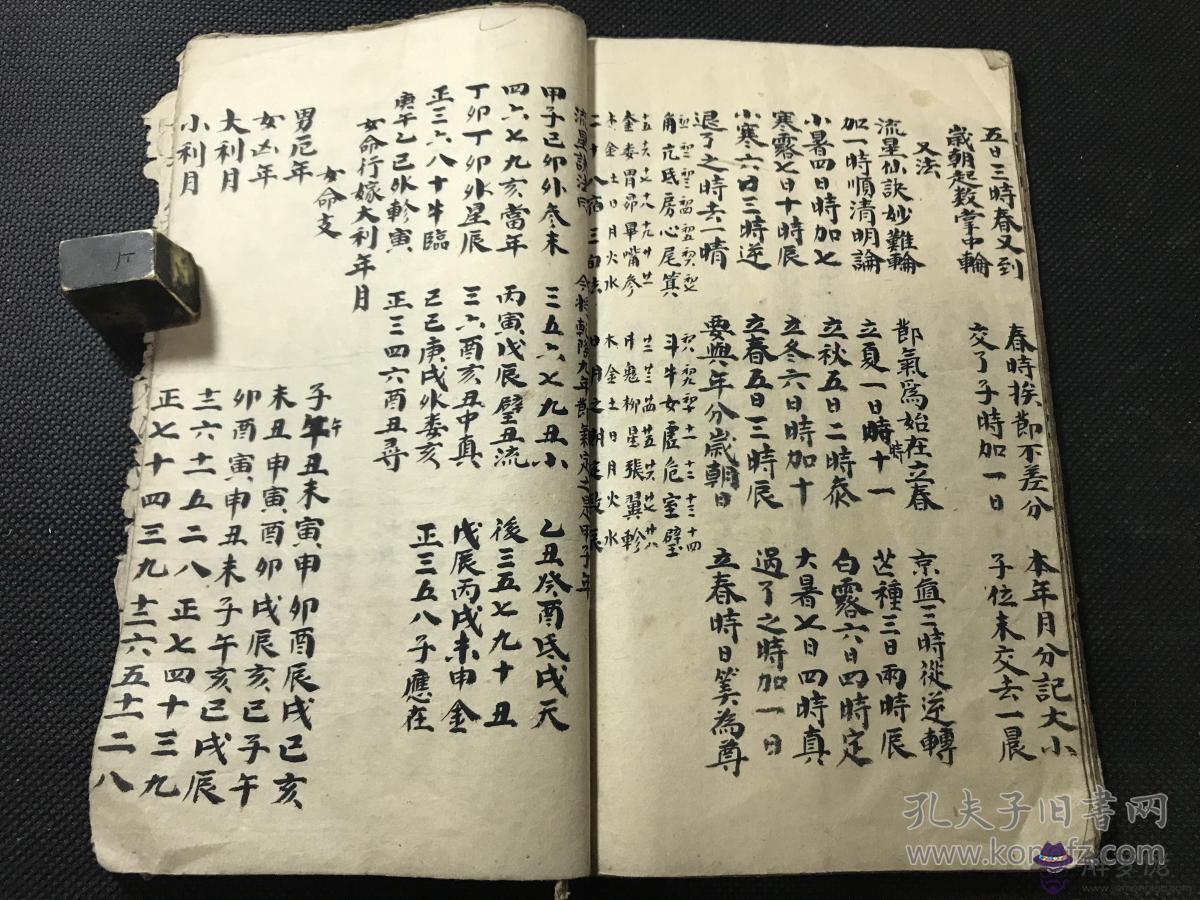 五日三時春又到　春時挨節不差分　本年月分記大小
歲朝起数掌中輪　交了子時加一日　子位未交去一晨
又法
流星仙訣妙難輪　節氣爲始在立春　京直三時從逆轉
加一時順清明論　立夏一日時十一　芒種三日兩時辰
小暑四日時加七　立秋五日二時泰　白露六日四時定
寒露七日十時辰　立冬六日時加十　大暑七日四時真
小寒六日三時逆　立春五日三時辰　過了之時加一日
退了之時去一晴　要與年分歲朝日　立春時日筭為尊
角亢氐房心尾箕　斗牛女虛危室壁
奎婁胃昴畢嘴參　井鬼柳星張翼軫
木金土日月火水　木金土日月火水
甲子己卯外參未　三五六七九丑小　乙丑癸酉氐戌天
四六七九亥當年　丙寅戊辰璧丑流　後三五七九十丑
丁卯丁卯外星辰　三六酉亥丑中真　戊辰丙戌未申金
正三六八十牛臨　己巳庚戌外婁亥　正三五八子應在
庚午乙巳外軫寅　正三四六酉丑尋
女命行嫁大利年月
女命支　子午丑未寅申卯酉辰戌巳亥
男厄年　未丑申寅酉卯戌辰亥巳子午
女凶年　卯酉寅申丑未子午亥巳戌辰
大利月　十二六十一五二八正七四十三九
小利月　正七十四三九十二六五十一二八
孔夫子旧書网
www.kongfz.com